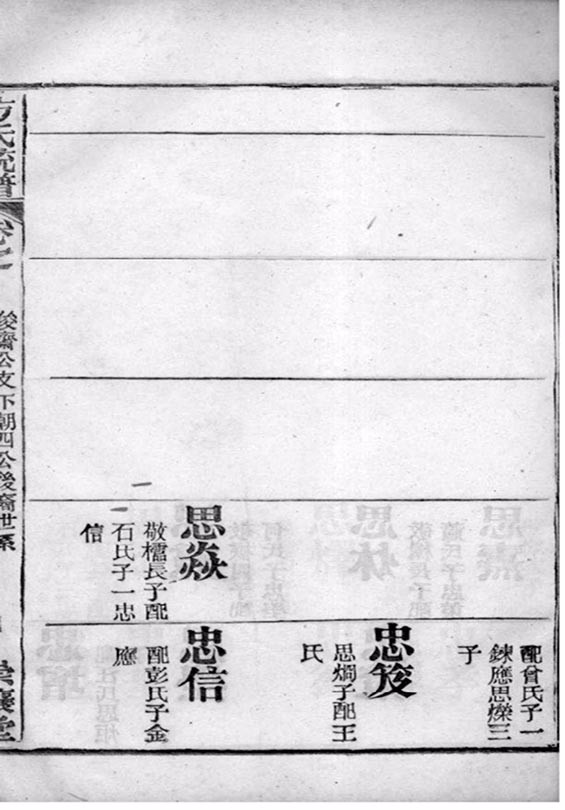 思焱
敬檽長子配
石氏子一忠
信
配曾氏子一
鍊應思爍三
子
忠笅
思燗子配王
氏
忠信
配彭氏子金
應
方氏統譜
卷之
齋公支下朝四公後裔世系
堂